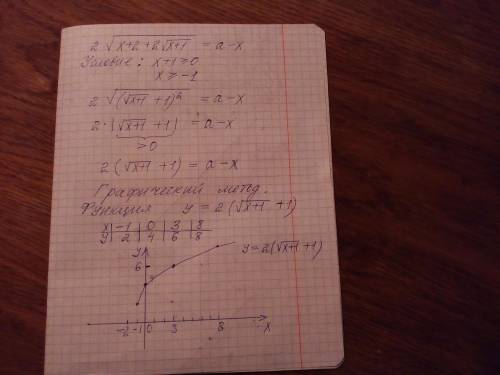 2 √(x+2+2√(x+1)) = a-x
Условие: x+1≥0
x≥-1
2 √((√(x+1) +1)²) = a-x
2·|√(x+1) +1| = a-x
>0
2(√(x+1) +1) = a-x
Графический метод.
Функция y = 2(√(x+1) +1)
x | -1 | 0 | 3 | 8
y | 2 | 4 | 6 | 8
y
6
y=2(√(x+1) +1)
-2 -1 0 3 8 x